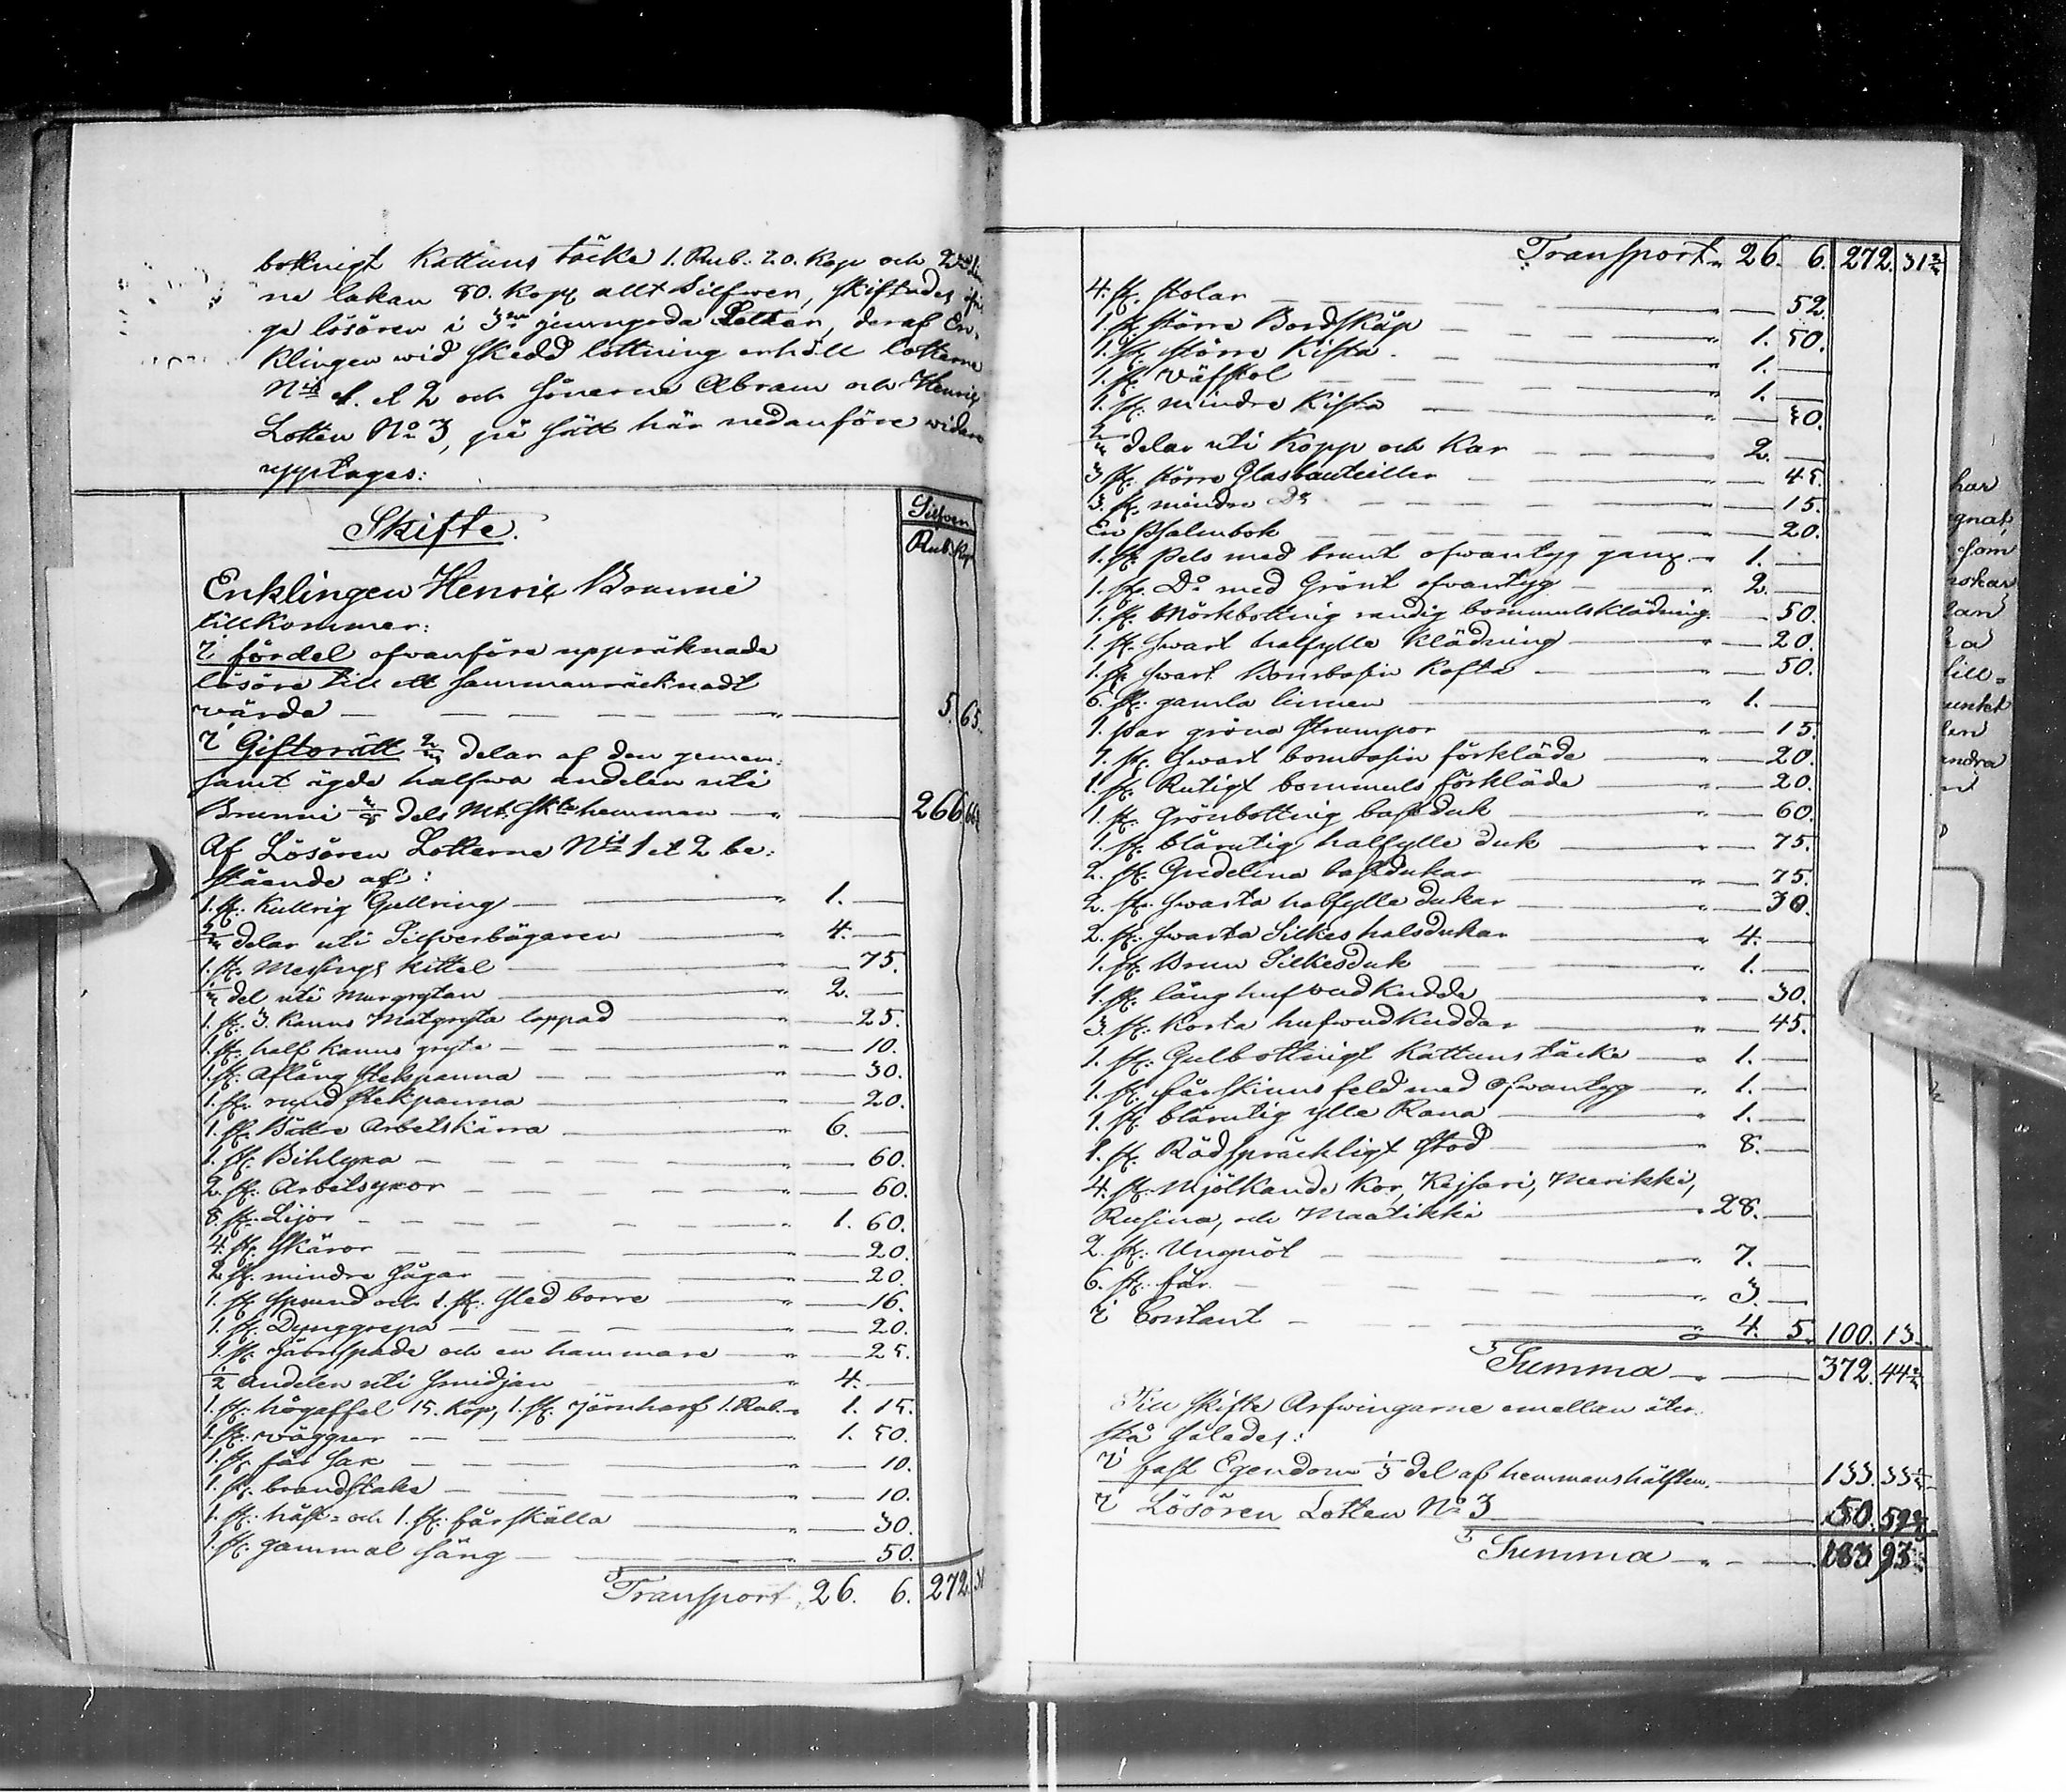 bottnigt Kattuns täcke 1. Rub. 20. Kop och 2
ne lakan 80. Kop allt Silfwer, skiftades
ga lösören i 3ne jemngoda Lotter, deraf En-
klingen wid skedd lottning erhöll lotterne
N:is 1. et 2 och Sönerne Abram och Henric
Lotten N:o 3, på sätt här nedanföre widare
upptages:
Skifte.
Silfwer
Rub. Kop
Enklingen Henric Brunni
tillkommer:
I fördel ofvanföre uppräknade
lösöre till ett sammanräcknadt
värde — 5. 65.
I Giftorätt 2/3 delar af den gemen-
samt ägde halfwa andelen uti
Brunni dels Mt. Skte hemman — 266 66
Af Lösören Lotterne N:is 1 et 2 be-
stående af:
1. st. Kullrig Gullring — 1. —
2/3 delar uti Silfverbägaren — 4. —
1. st. Messings kittel — 75.
del uti Murgrytan — 2. —
1. st. 3. Kanns Matgryta lappad — 25.
1. st. half Kanns gryta — 10.
1. st. Aflång Stekpanna — 30.
1. st. rund Stekpanna — 20.
1. st. Bättre Arbetskärra — 6. —
1. st. Bihlyxa — 60.
2. st. Arbetsyxor — 60.
8. st. Lijor — 1. 60.
4. st. Skäror — 20.
2. st. mindre Sågar — 20.
1. st. Sprund och 1. st. Sled borre — 16.
1. st. Dynggrepa — 20.
1. st. Järnspade och en hammare — 25.
1/2 andelen uti Smidjan — 4. —
1. st. högaffel 15. Kop, 1. st. Järnharf 1. Rub. — 1. 15.
1. st. väggur — 1. 50.
1. st. får sax — 10.
1. st. brandstake — 10.
1. st. häst- och 1. st. får skälla — 30.
1. st. gammal Säng — 50.
Transport 26. 6. 272. 31
Transport 26. 6. 272. 31 2/3
4. st. stolar — 52.
1. st. större Bordskåp — 1. 50.
1. st. större Kista — 1. —
1. st. Väfstol — 1. —
1. st. mindre Kista — 50.
2/3 delar uti Kopp och Kar — 2. —
3 st. större Glasbouteiller — 45.
3. st. mindre Do — 15.
En Psalmbok — 20.
1. st. Pels med brunt ofwantyg — 1. —
1. st. Do med Grönt ofvantyg — 2. —
1. st. Mörkbottnig randig bommulsklädning — 50.
1. st. Swart halfylle Klädning — 20.
1. st. Swart Bombasin Kofta — 50.
6. st. gamla linnen — 1. —
1. par gröna Strumpor — 15.
1. st. Swart bombasin förkläde — 20.
1. st. Rutigt bommuls förkläde — 20.
1. st. Grönbottnig bastduk — 60.
1. st. blårutig halfylle duk — 75.
2. st. Gredelina bastdukar — 75.
2. st. Swarta halfylle dukar — 30.
2. st. Swarta Silkes halsdukar — 4. —
1. st. Brun Silkesduk — 1. —
1. st. lång hufwudKudde — 30.
3. st. Korta hufwudKuddar — 45.
1. st. Gulbottnigt Kattuns täcke — 1. —
1. st. fårskinns feld med ofwantyg — 1. —
1. st. blårutig ylle Rana — 1. —
1. st. Rödspräckligt Stod — 8. —
4. st. Mjölkande Kor, Kejsari, Merikki,
Rusina, och Maatikki — 28. —
2. st. Ungnöt — 7. —
6. st. får — 3. —
I Contant — 4. 5. 100. 13.
Summa — 372. 44 2/3
Till skifte Arfwingarne emellan åter-
stå således:
I fast Egendom 1/3 del af hemmanshälften. — 133. 33 1/3
I Lösören Lotten N:o 3 — 50. 59 2/3
Summa — 183 93
har
som
till-
andra